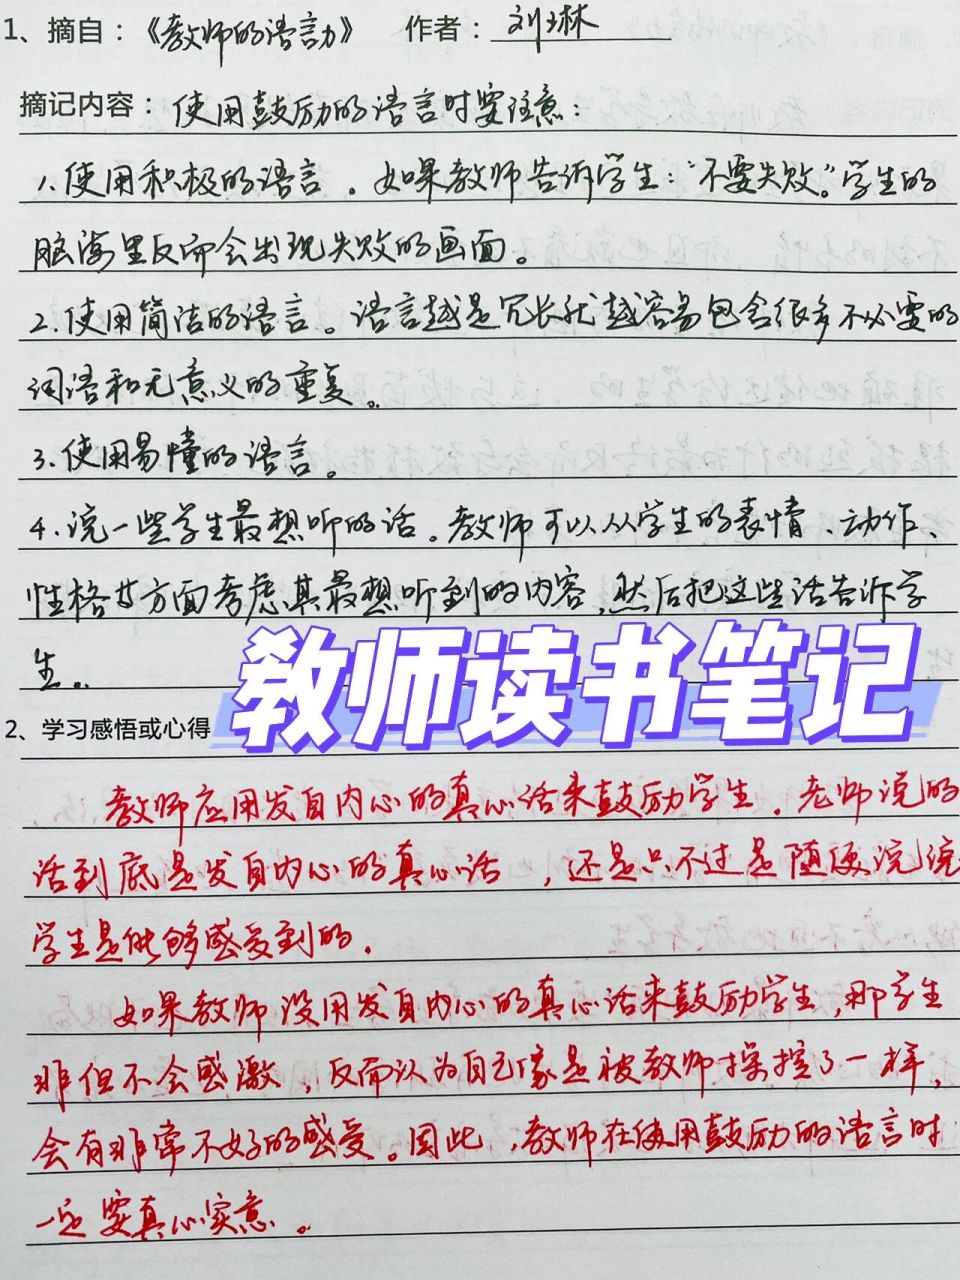 1、摘自：《教师的语言力》 作者：刘琳
摘记内容：使用鼓励的语言时要注意：
1.使用积极的语言。如果教师告诉学生："不要失败。"学生的
脑海里反而会出现失败的画面。
2.使用简洁的语言。语言越是冗长就越容易包含很多不必要的
词语和无意义的重复。
3.使用易懂的语言。
4.说一些学生最想听的话。教师可以从学生的表情、动作、
性格等方面考虑其最想听到的内容,然后把这些话告诉学
生。
教师读书笔记
2、学习感悟或心得
教师应用发自内心的真心话来鼓励学生。老师说的
话到底是发自内心的真心话，还是只不过是随便说说
学生是能够感受到的.
如果教师没用发自内心的真心话来鼓励学生,那学生
非但不会感激，反而认为自己像是被教师操控了一样，
会有非常不好的感受。因此，教师在使用鼓励的语言时
一定要真心实意。